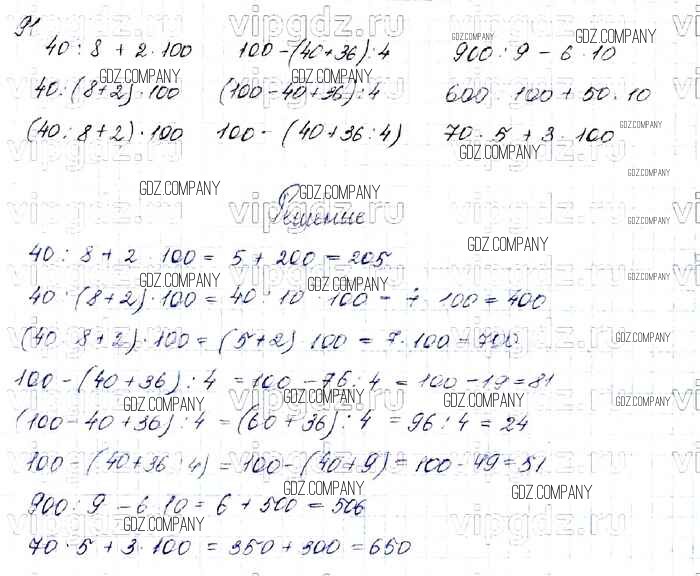 91
40 : 8 + 2 · 100 100 - (40 + 36) : 4 900 : 9 - 6 · 10
40 : (8 + 2) · 100 (100 - 40 + 36) : 4 600 : 100 + 50 · 10
(40 : 8 + 2) · 100 100 - (40 + 36 : 4) 70 · 5 + 3 · 100
Решение
40 : 8 + 2 · 100 = 5 + 200 = 205
40 : (8 + 2) · 100 = 40 : 10 · 100 = 4 · 100 = 400
(40 : 8 + 2) · 100 = (5 + 2) · 100 = 7 · 100 = 700
100 - (40 + 36) : 4 = 100 - 76 : 4 = 100 - 19 = 81
(100 - 40 + 36) : 4 = (60 + 36) : 4 = 96 : 4 = 24
100 - (40 + 36 : 4) = 100 - (40 + 9) = 100 - 49 = 51
900 : 9 - 6 · 10 = 6 + 500 = 506
70 · 5 + 3 · 100 = 350 + 300 = 650
vipgdz.ru
GDZ.COMPANY